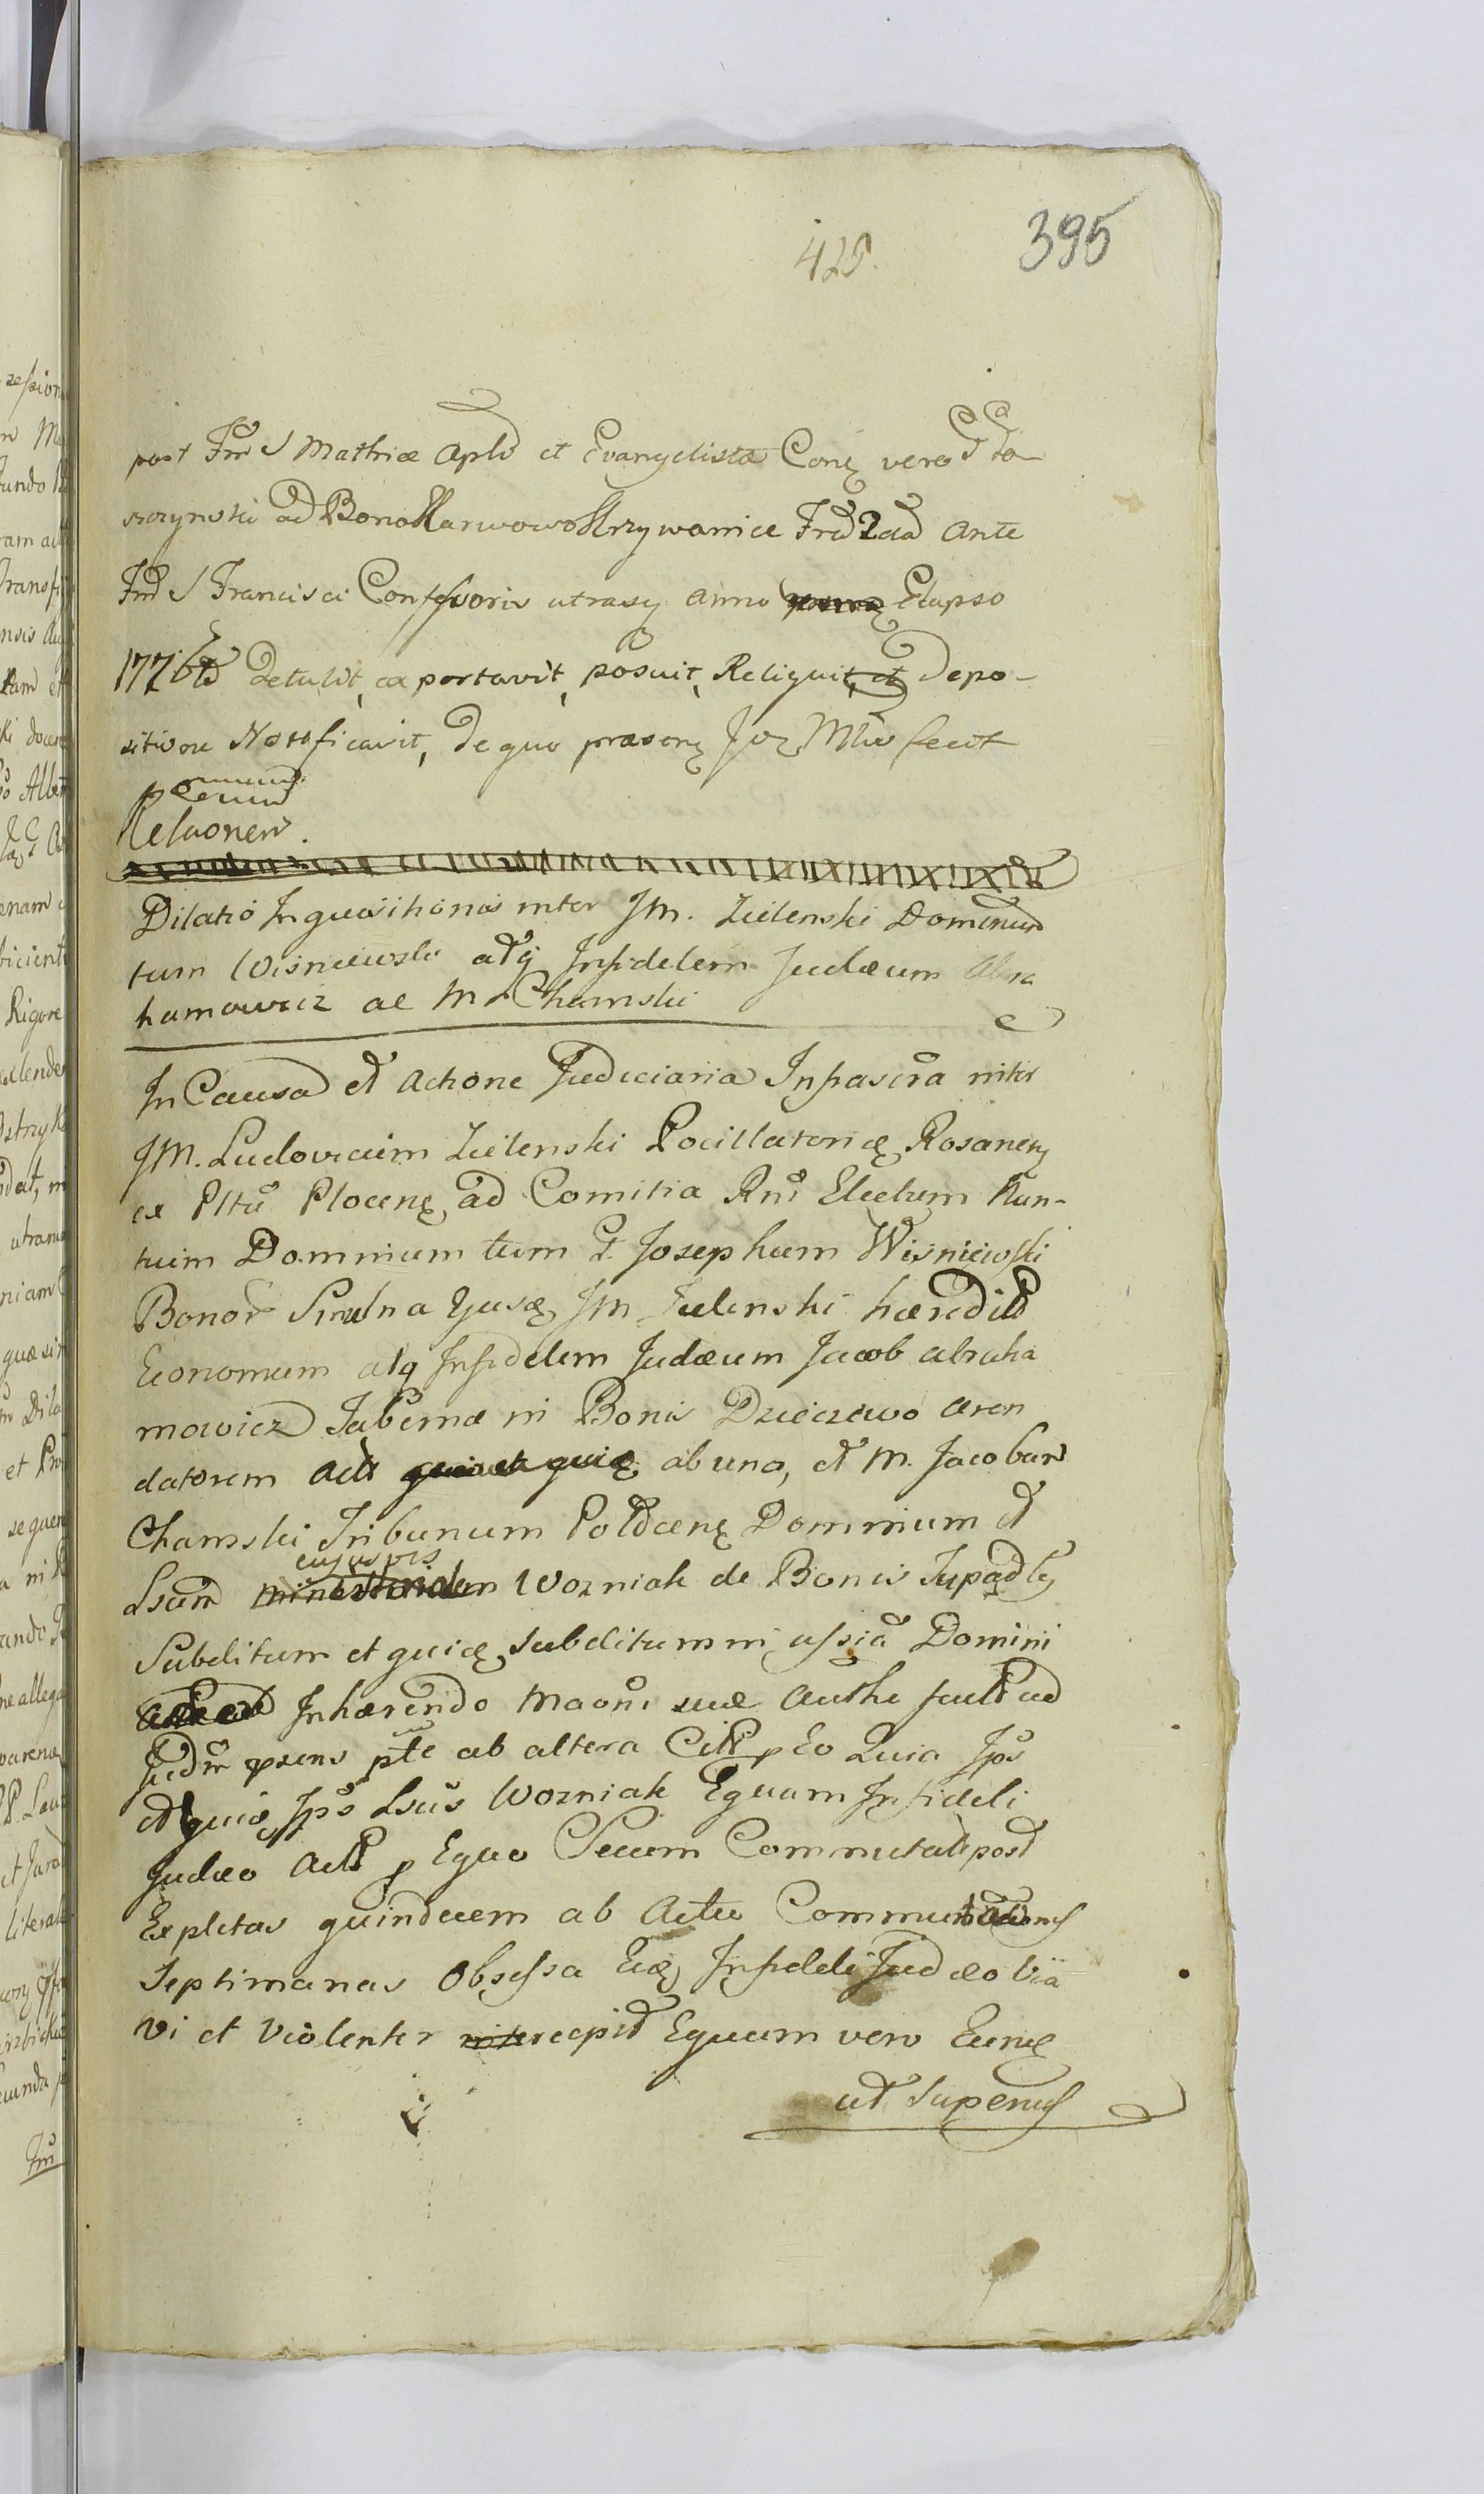 395
425.
post Fm S Mathiæ Apli et Evangelistæ Conq vero G Ga
szczynski ad Bona Karwowo Krzywanice Fria 2da Ante
Fm S Francisci Confessoris utrasq Anno Elapso
1776to Detulit, exportavit, posuit, Reliquit, et Depo-
sitione Notificavit, De quo præsenq Jdq Mlio fecit
Relaonem.
Dilatio Inquisitionis inter JM. Zielenski Dominum
tum Wisniewski atq Infidelem Judæum Abra
hamowicz ac M Chamski
In Causa et Actione Judiciaria Infrascra inter
JM. Ludovicum Zielenski Pocillatoridę Rosanenę
ex Pltu Plocenę ad Comitia Rni Electum Nun-
tium Dominum tum G. Josephum Wisniewski
Bonor Smulna Ejusdę JM Zielenski hæredit
Economum atq Infidelem Judæum Jacob Abraha
mowicz Tabernæ in Bonis Dzieczewo Aren
datorem Act ab una, et M. Jacobum
Chamski Tribunum Plocenę Dominum et
Lsum cujusvis Wozniak de Bonis Zupadły
Subditum et quidę subditum in assia Domini
Inhærendo Maoni suæ Authe facta ad
Judm præsens pte ab altera Citt p Eo Quia Ips
et quidę Ips Lsus Wozniak Equam Infideli
Judæo Act p Equo Secum Commutat post
Expletas quindecem ab Actu Commutationis
Septimanas Obsessa Eidę Infideli Judæo Via
Vi et Violenter recepit Equum vero Eundę
ut Superius